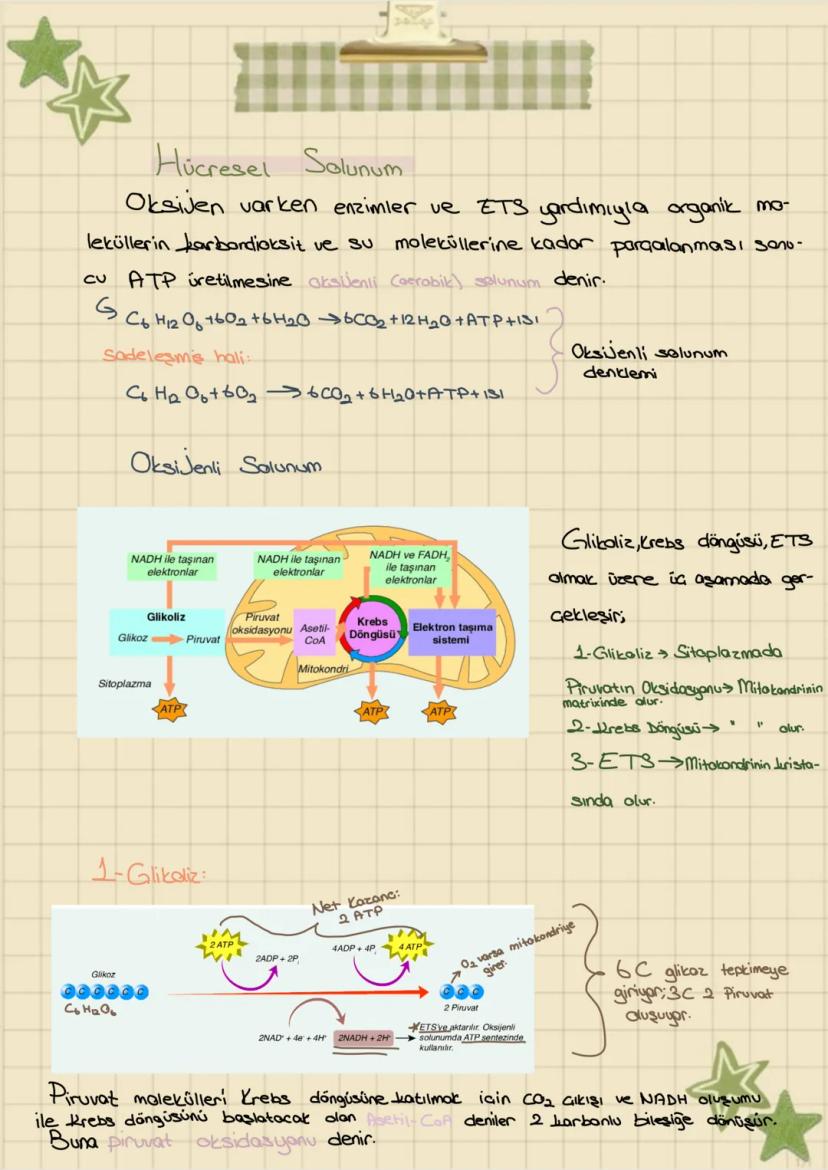 Hücresel Solunum
Oksijen varken enzimler ve ETS yardımıyla organik mo-
leküllerin karbondioksit ve su moleküllerine kadar parçalanması sonu-
cu ATP üretilmesine oksijenli (aerobik) solunum denir.
C6H12O6+6O2+6H2O →6CO2+12H2O+ATP+ısı
Sadeleşmiş hali:
C6H12O6+6O2 → 6CO2+6H2O+ATP+ısı
Oksijenli solunum
denklemi
Oksijenli Solunum
NADH ile taşınan
elektronlar
NADH ile taşınan
elektronlar
NADH ve FADH2
ile taşınan
elektronlar
Glikoliz
Glikoz
Piruvat
Piruvat
oksidasyonu
Asetil-
CoA
Krebs
Döngüsü
Elektron taşıma
sistemi
Mitokondri
Sitoplazma
ATP
ATP
ATP
Glikoliz, Krebs döngüsü, ETS
olmak üzere üç aşamada ger-
çekleşir;
1-Glikoliz → Sitoplazmada
Piruvatın Oksidasyonu→ Mitokondrinin
matrixinde olur.
2-Krebs Döngüsü→ " " olur.
3-ETS →Mitokondrinin krista-
sında olur.
1-Glikoliz:
Net Kazanç:
2 ATP
2 ATP
2ADP + 2Pi
4ADP + 4Pi
4 ATP
O2 varsa mitokondriye
girer.
Glikoz
C C C C C C
C6H12O6
C C C
2 Piruvat
2NAD+ + 4e- + 4H+
2NADH + 2H+
*ETS'ye aktarılır. Oksijenli
solunumda ATP sentezinde
kullanılır.
6C glikoz tepkimeye
giriyor; 3C 2 Piruvat
oluşuyor.
Piruvat molekülleri Krebs döngüsüne katılmak için CO2 çıkışı ve NADH oluşumu
ile Krebs döngüsünü başlatacak olan Asetil-CoA deniler 2 karbonlu bileşiğe dönüşür.
Buna piruvat oksidasyonu denir.